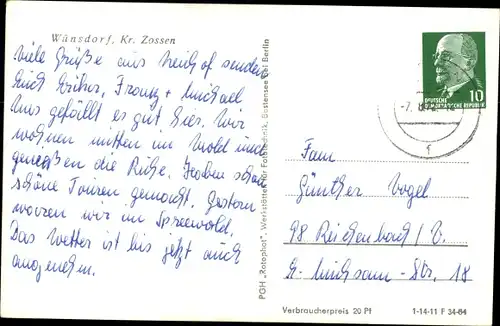 Wünsdorf, Kr. Zossen
Viele Grüße aus Neuhof senden
Euch Erika, Franz + Michael
Uns gefällt es gut hier. Wir
wohnen mitten im Wald und
genießen die Ruhe. Haben schon
schöne Touren gemacht. Gestern
waren wir im Spreewald.
Das Wetter ist bis jetzt auch
angenehm.
PGH „Rotophot", Werkstätten für Fototechnik, Bestensee bei Berlin
DEUTSCHE
DEMOKRATISCHE REPUBLIK
10
Fam
Günther Vogel
98 Reichenbach/V.
Str. 18
Verbraucherpreis 20 Pf
1-14-11 F 34-64